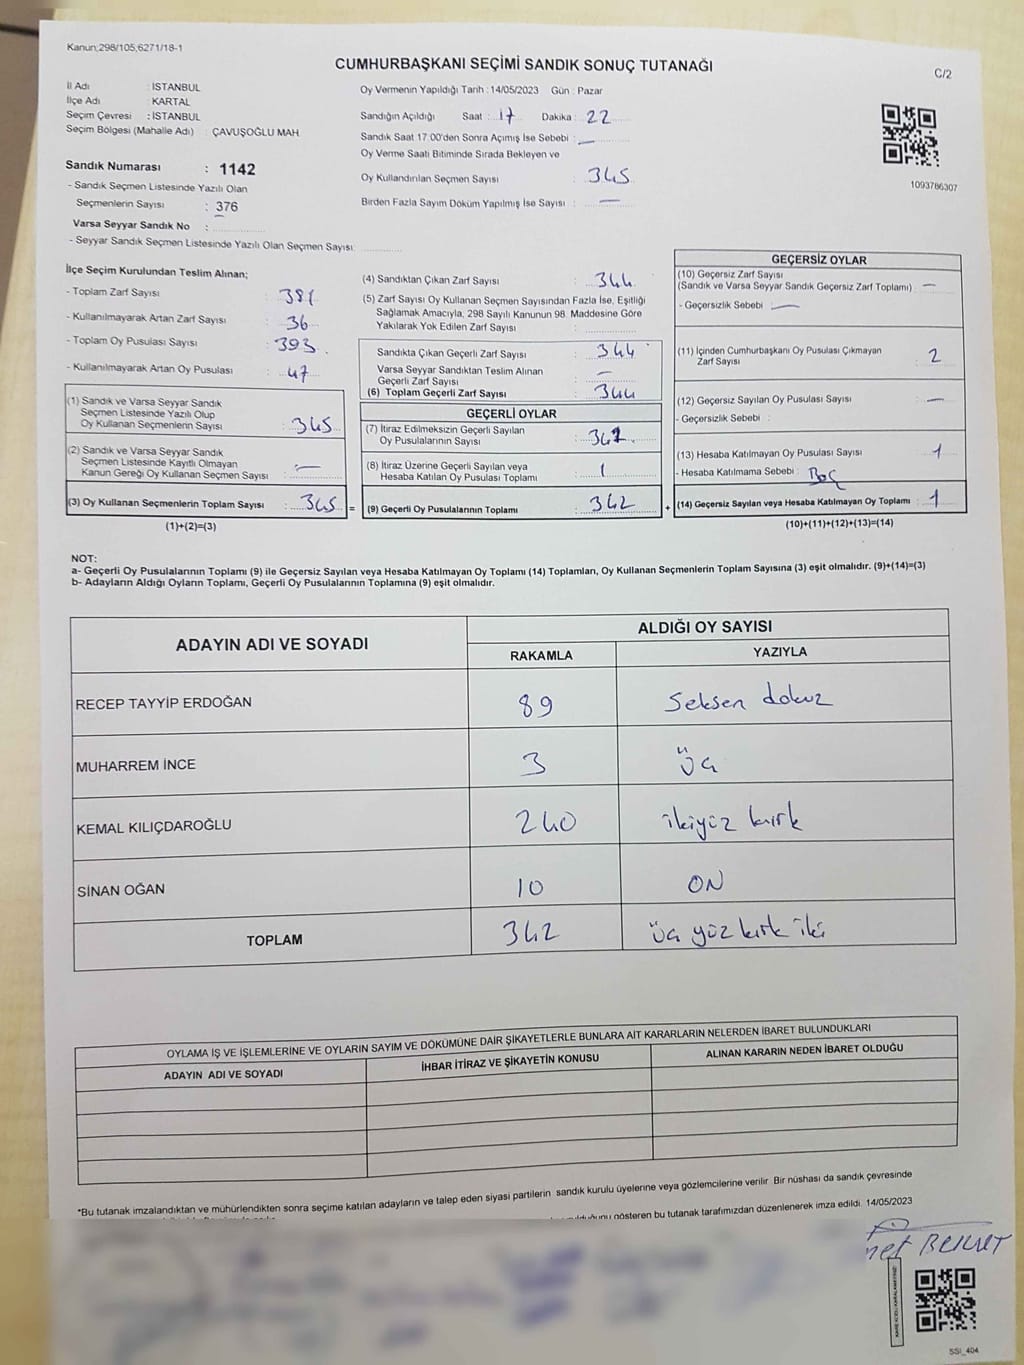 Kanun;298/105,6271/18-1
CUMHURBAŞKANI SEÇİMİ SANDIK SONUÇ TUTANAĞI
C/2
İl Adı : İSTANBUL
İlçe Adı : KARTAL
Seçim Çevresi : İSTANBUL
Seçim Bölgesi (Mahalle Adı) : ÇAVUŞOĞLU MAH
Sandık Numarası : 1142
- Sandık Seçmen Listesinde Yazılı Olan
Seçmenlerin Sayısı : 376
Varsa Seyyar Sandık No :
- Seyyar Sandık Seçmen Listesinde Yazılı Olan Seçmen Sayısı:
Oy Vermenin Yapıldığı Tarih : 14/05/2023 Gün : Pazar
Sandığın Açıldığı Saat : 17 Dakika : 22
Sandık Saat 17:00'den Sonra Açımış İse Sebebi : —
Oy Verme Saati Bitiminde Sırada Bekleyen ve
Oy Kullandırılan Seçmen Sayısı : 345
Birden Fazla Sayım Döküm Yapılmış İse Sayısı : —
1093786307
İlçe Seçim Kurulundan Teslim Alınan;
- Toplam Zarf Sayısı : 381
- Kullanılmayarak Artan Zarf Sayısı : 36
- Toplam Oy Pusulası Sayısı : 393
- Kullanılmayarak Artan Oy Pusulası : 47
(1) Sandık ve Varsa Seyyar Sandık
Seçmen Listesinde Yazılı Olup
Oy Kullanan Seçmenlerin Sayısı : 345
(2) Sandık ve Varsa Seyyar Sandık
Seçmen Listesinde Kayıtlı Olmayan
Kanun Gereği Oy Kullanan Seçmen Sayısı : —
(3) Oy Kullanan Seçmenlerin Toplam Sayısı : 345 =
(1)+(2)=(3)
(4) Sandıktan Çıkan Zarf Sayısı : 344
(5) Zarf Sayısı Oy Kullanan Seçmen Sayısından Fazla İse, Eşitliği
Sağlamak Amacıyla, 298 Sayılı Kanunun 98. Maddesine Göre
Yakılarak Yok Edilen Zarf Sayısı :
Sandıkta Çıkan Geçerli Zarf Sayısı : 344
Varsa Seyyar Sandıktan Teslim Alınan
Geçerli Zarf Sayısı : —
(6) Toplam Geçerli Zarf Sayısı : 344
GEÇERLİ OYLAR
(7) İtiraz Edilmeksizin Geçerli Sayılan
Oy Pusulalarının Sayısı :
(8) İtiraz Üzerine Geçerli Sayılan veya
Hesaba Katılan Oy Pusulası Toplamı : 1
(9) Geçerli Oy Pusulalarının Toplamı : 342 +
GEÇERSİZ OYLAR
(10) Geçersiz Zarf Sayısı
(Sandık ve Varsa Seyyar Sandık Geçersiz Zarf Toplamı) : —
- Geçersizlik Sebebi : —
(11) İçinden Cumhurbaşkanı Oy Pusulası Çıkmayan
Zarf Sayısı : 2
(12) Geçersiz Sayılan Oy Pusulası Sayısı : —
- Geçersizlik Sebebi :
(13) Hesaba Katılmayan Oy Pusulası Sayısı : 1
- Hesaba Katılmama Sebebi : Boç
(14) Geçersiz Sayılan veya Hesaba Katılmayan Oy Toplamı : 1
(10)+(11)+(12)+(13)=(14)
NOT:
a- Geçerli Oy Pusulalarının Toplamı (9) ile Geçersiz Sayılan veya Hesaba Katılmayan Oy Toplamı (14) Toplamları, Oy Kullanan Seçmenlerin Toplam Sayısına (3) eşit olmalıdır. (9)+(14)=(3)
b- Adayların Aldığı Oyların Toplamı, Geçerli Oy Pusulalarının Toplamına (9) eşit olmalıdır.
ADAYIN ADI VE SOYADI
ALDIĞI OY SAYISI
RAKAMLA YAZIYLA
RECEP TAYYİP ERDOĞAN 89 Seksen dokuz
MUHARREM İNCE 3 üç
KEMAL KILIÇDAROĞLU 240 ikiyüz kırk
SİNAN OĞAN 10 ON
TOPLAM 342 üç yüz kırk iki
OYLAMA İŞ VE İŞLEMLERİNE VE OYLARIN SAYIM VE DÖKÜMÜNE DAİR ŞİKAYETLERLE BUNLARA AİT KARARLARIN NELERDEN İBARET BULUNDUKLARI
ADAYIN ADI VE SOYADI İHBAR İTİRAZ VE ŞİKAYETİN KONUSU ALINAN KARARIN NEDEN İBARET OLDUĞU
*Bu tutanak imzalandıktan ve mühürlendikten sonra seçime katılan adayların ve talep eden siyasi partilerin sandık kurulu üyelerine veya gözlemcilerine verilir. Bir nüshası da sandık çevresinde
gösteren bu tutanak tarafımızdan düzenlenerek imza edildi. 14/05/2023
SSI_404